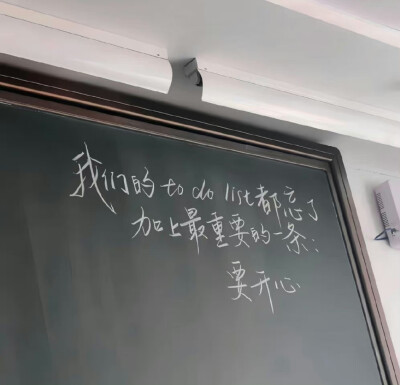 我们的to do list都忘了
加上最重要的一条:
要开心